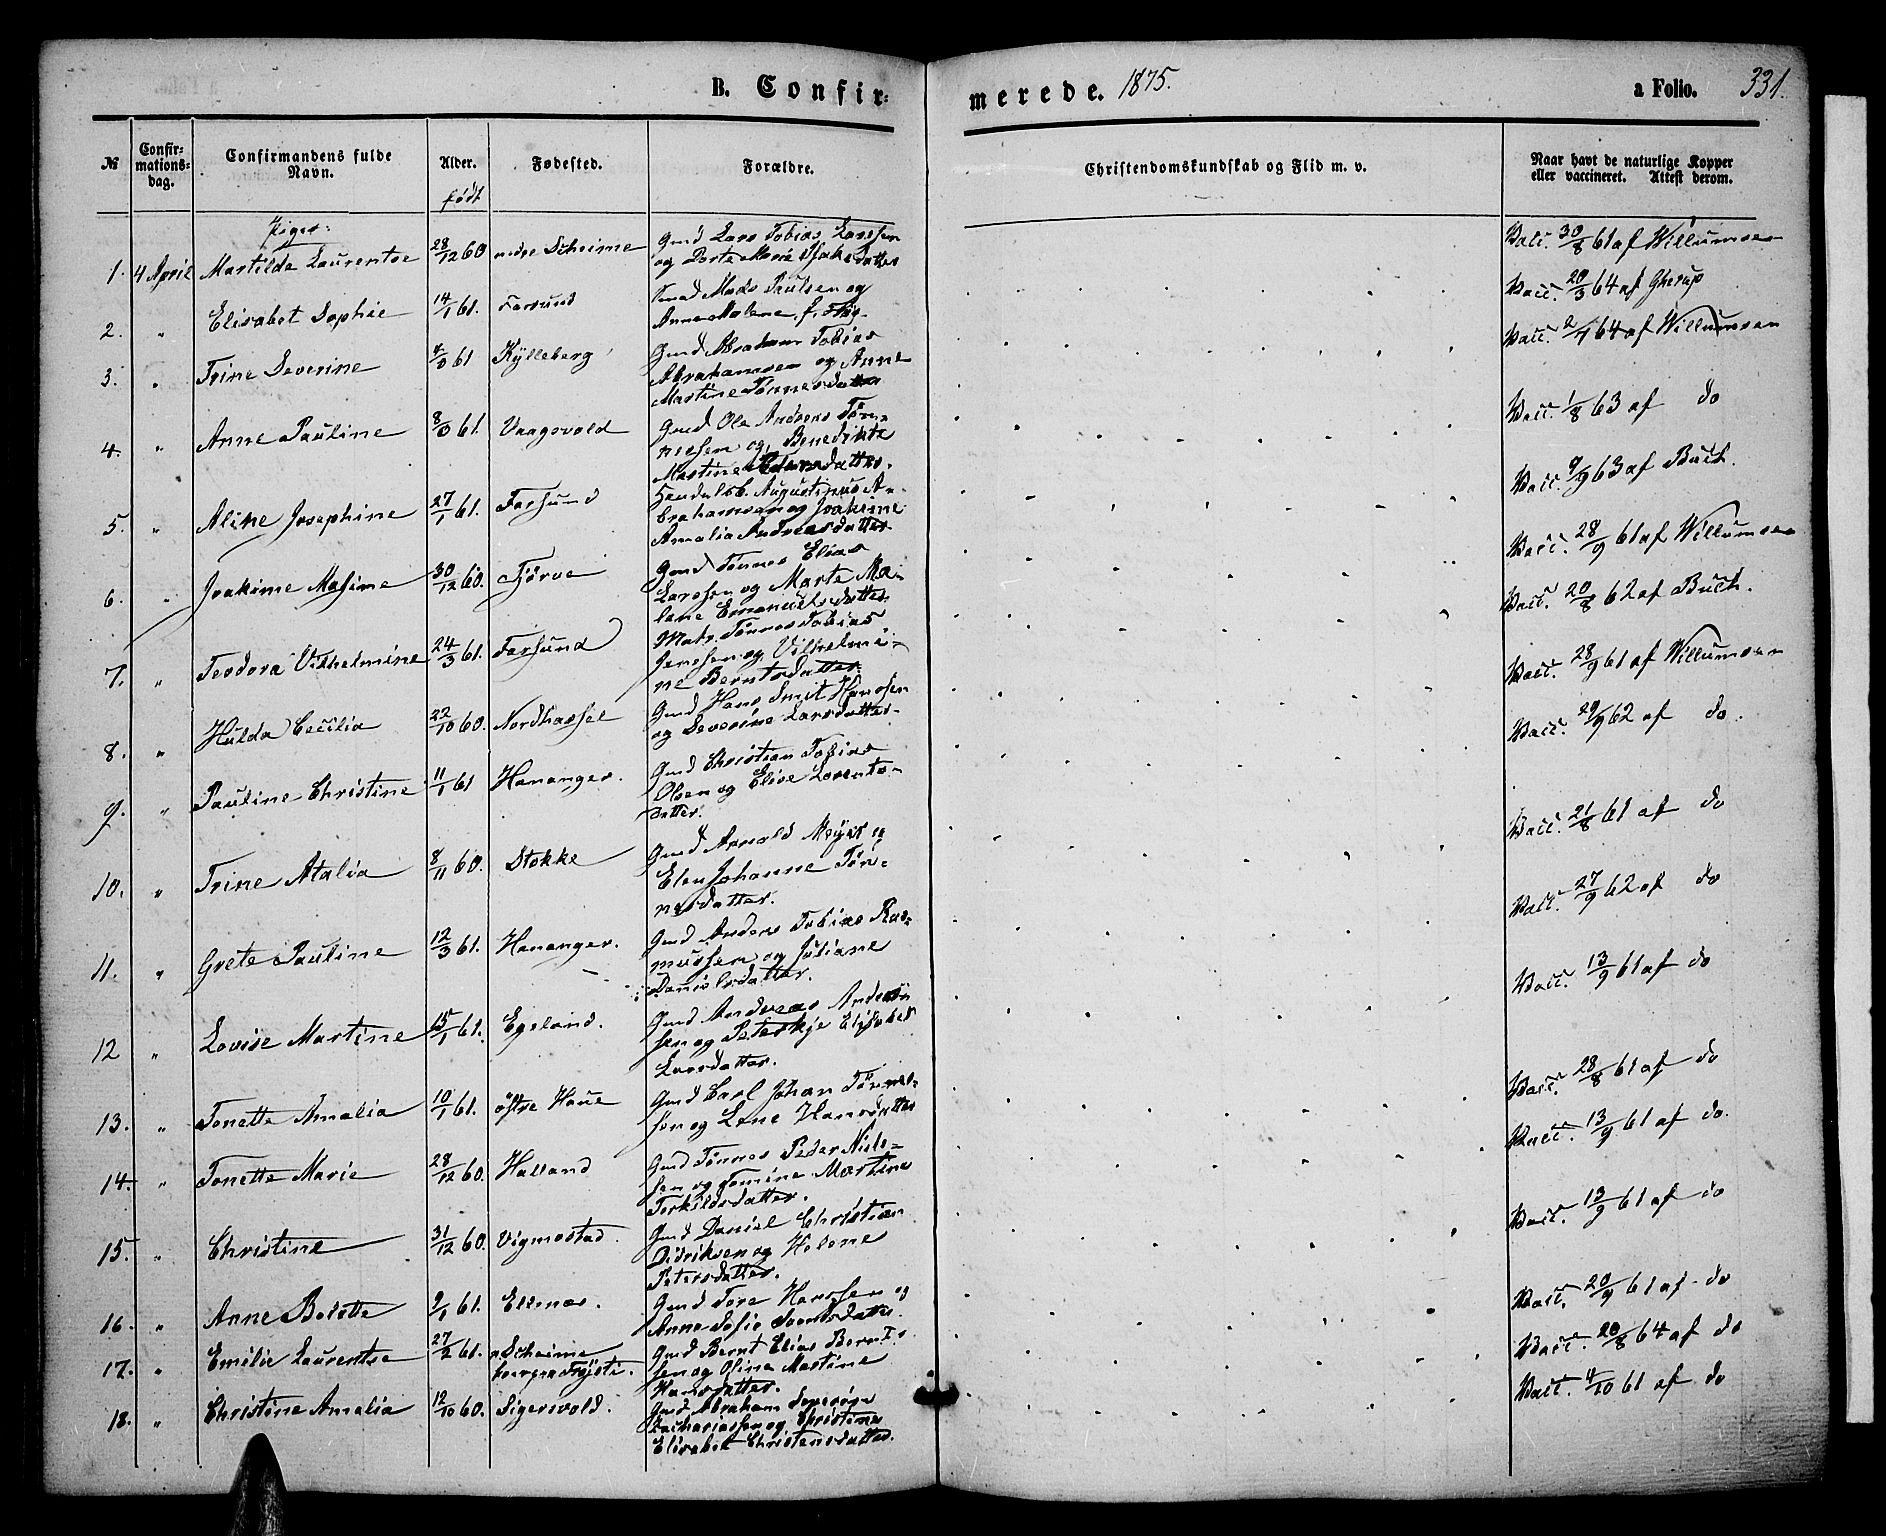 B. Confirmerede. 1875.
a Folio. 331.
№
Confirmationsdag.
Confirmandens fulde Navn.
Alder. født
Fødested.
Forældre.
Christendomskundskab og Flid m. v.
Naar havt de naturlige Kopper eller vaccineret. Attest derom.
Piger:
1. 4 April Martilde Laurentse 28/12 60 nedre Skeime Gmd Lars Tobias Larssen
og Dorte Marie Vacc. 30/8 61 af Willumsen
2. " Elisabet Sophie 14/1 61. Farsund Mads Paulsen og
Anne Malene Vacc. 20/3 64 af
3. " Trine Severine 61 Kylleberg Gmd Abraham Tobias
Abrahamsen og Anne
Martine Tønnesdatter Vacc. 64 af Willumsen
4. " Anne Pauline 61. Vaagsvold Gmd Ole Andreas Tøn-
nessen og Benedikte
Martine Vacc. 1/8 63 af do
5. " Aline Josephine 27/1 61. Farsund Handelsb. Augustinus A-
brahamsen og Joakime
Amalia Andreasdatter Vacc. 9/9 63 af Buch.
6. " Joakime Masime 30/12 60. Tjørve Gmd Tønnes Elias
Larssen og Marte Ma-
lene Emanuelsdatter Vacc. 28/9 61 af Willumsen
7. " Teodora Vilhelmine 24/3 61. Farsund Matr. Tønnes Tobias
Jenssen og Vilhelmi-
ne Berntsdatter Vacc. 20/8 62 af Buch.
8. " Hulda Cecilia 22/10 60. Nordhassel Gmd Hans Smit Hanssen
og Severine Larsdatter Vacc. 28/9 61 af Willumsen
9. " Pauline Christine 11/1 61 Hananger. Gmd Christian Tobias
Olsen og Elise Lorents-
datter. Vacc. 29/9 62 af do.
10. " Trine Atalia 8/11 60. Stokke Gmd Arnold Meyer og
Elen Johanne Tøn-
nesdatter. Vacc. 21/8 61 af do
11. " Grete Pauline 12/3 61. Hananger. Gmd Anders Tobias Ras-
mussen og Juliane
Danielsdatter. Vacc. 27/9 62 af do
12 " Lovise Martine 15/1 61. Egeland. Gmd Andreas Anders-
sen og Peterkje Elisabet
Larsdatter. Vacc. 13/9 61 af do
13. " Tonette Amalia 10/1 61. østre Haue Gmd Carl Johan Tønnes-
sen og Lene Hansdatter Vacc. 28/8 61 af do
14. " Tonette Marie 28/12 60. Halland Gmd Tønnes Peder Niels-
sen og Tomine Martine
Torkildsdatter. Vacc. 13/9 61 af do.
15. " Christine 31/12 60. Vigmostad. Gmd Daniel Christian
Didriksen og Helene
Petersdatter. Vacc. 13/9 61 af do
16. " Anne Bolette 9/1 61. Ellenes. Gmd Tore Hanssen og
Anne Sofie Vacc. 20/9 61 af do
17. " Emilie Laurentse 27/2 61. Skeime Gmd Bernt Elias Bernt-
sen og Oline Martine
Hansdatter. Vacc. 20/8 64 af do
18. " Christine Amalia 12/10 60. Sigersvold. Gmd Abraham
Zachariassen og Christine
Elisabet Christensdatter. Vacc. 4/10 61 af do